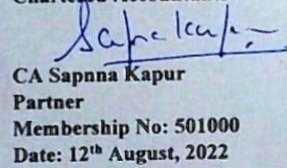 CA Sapnna Kapur
Partner
Membership No: 501000
Date: 12th August, 2022